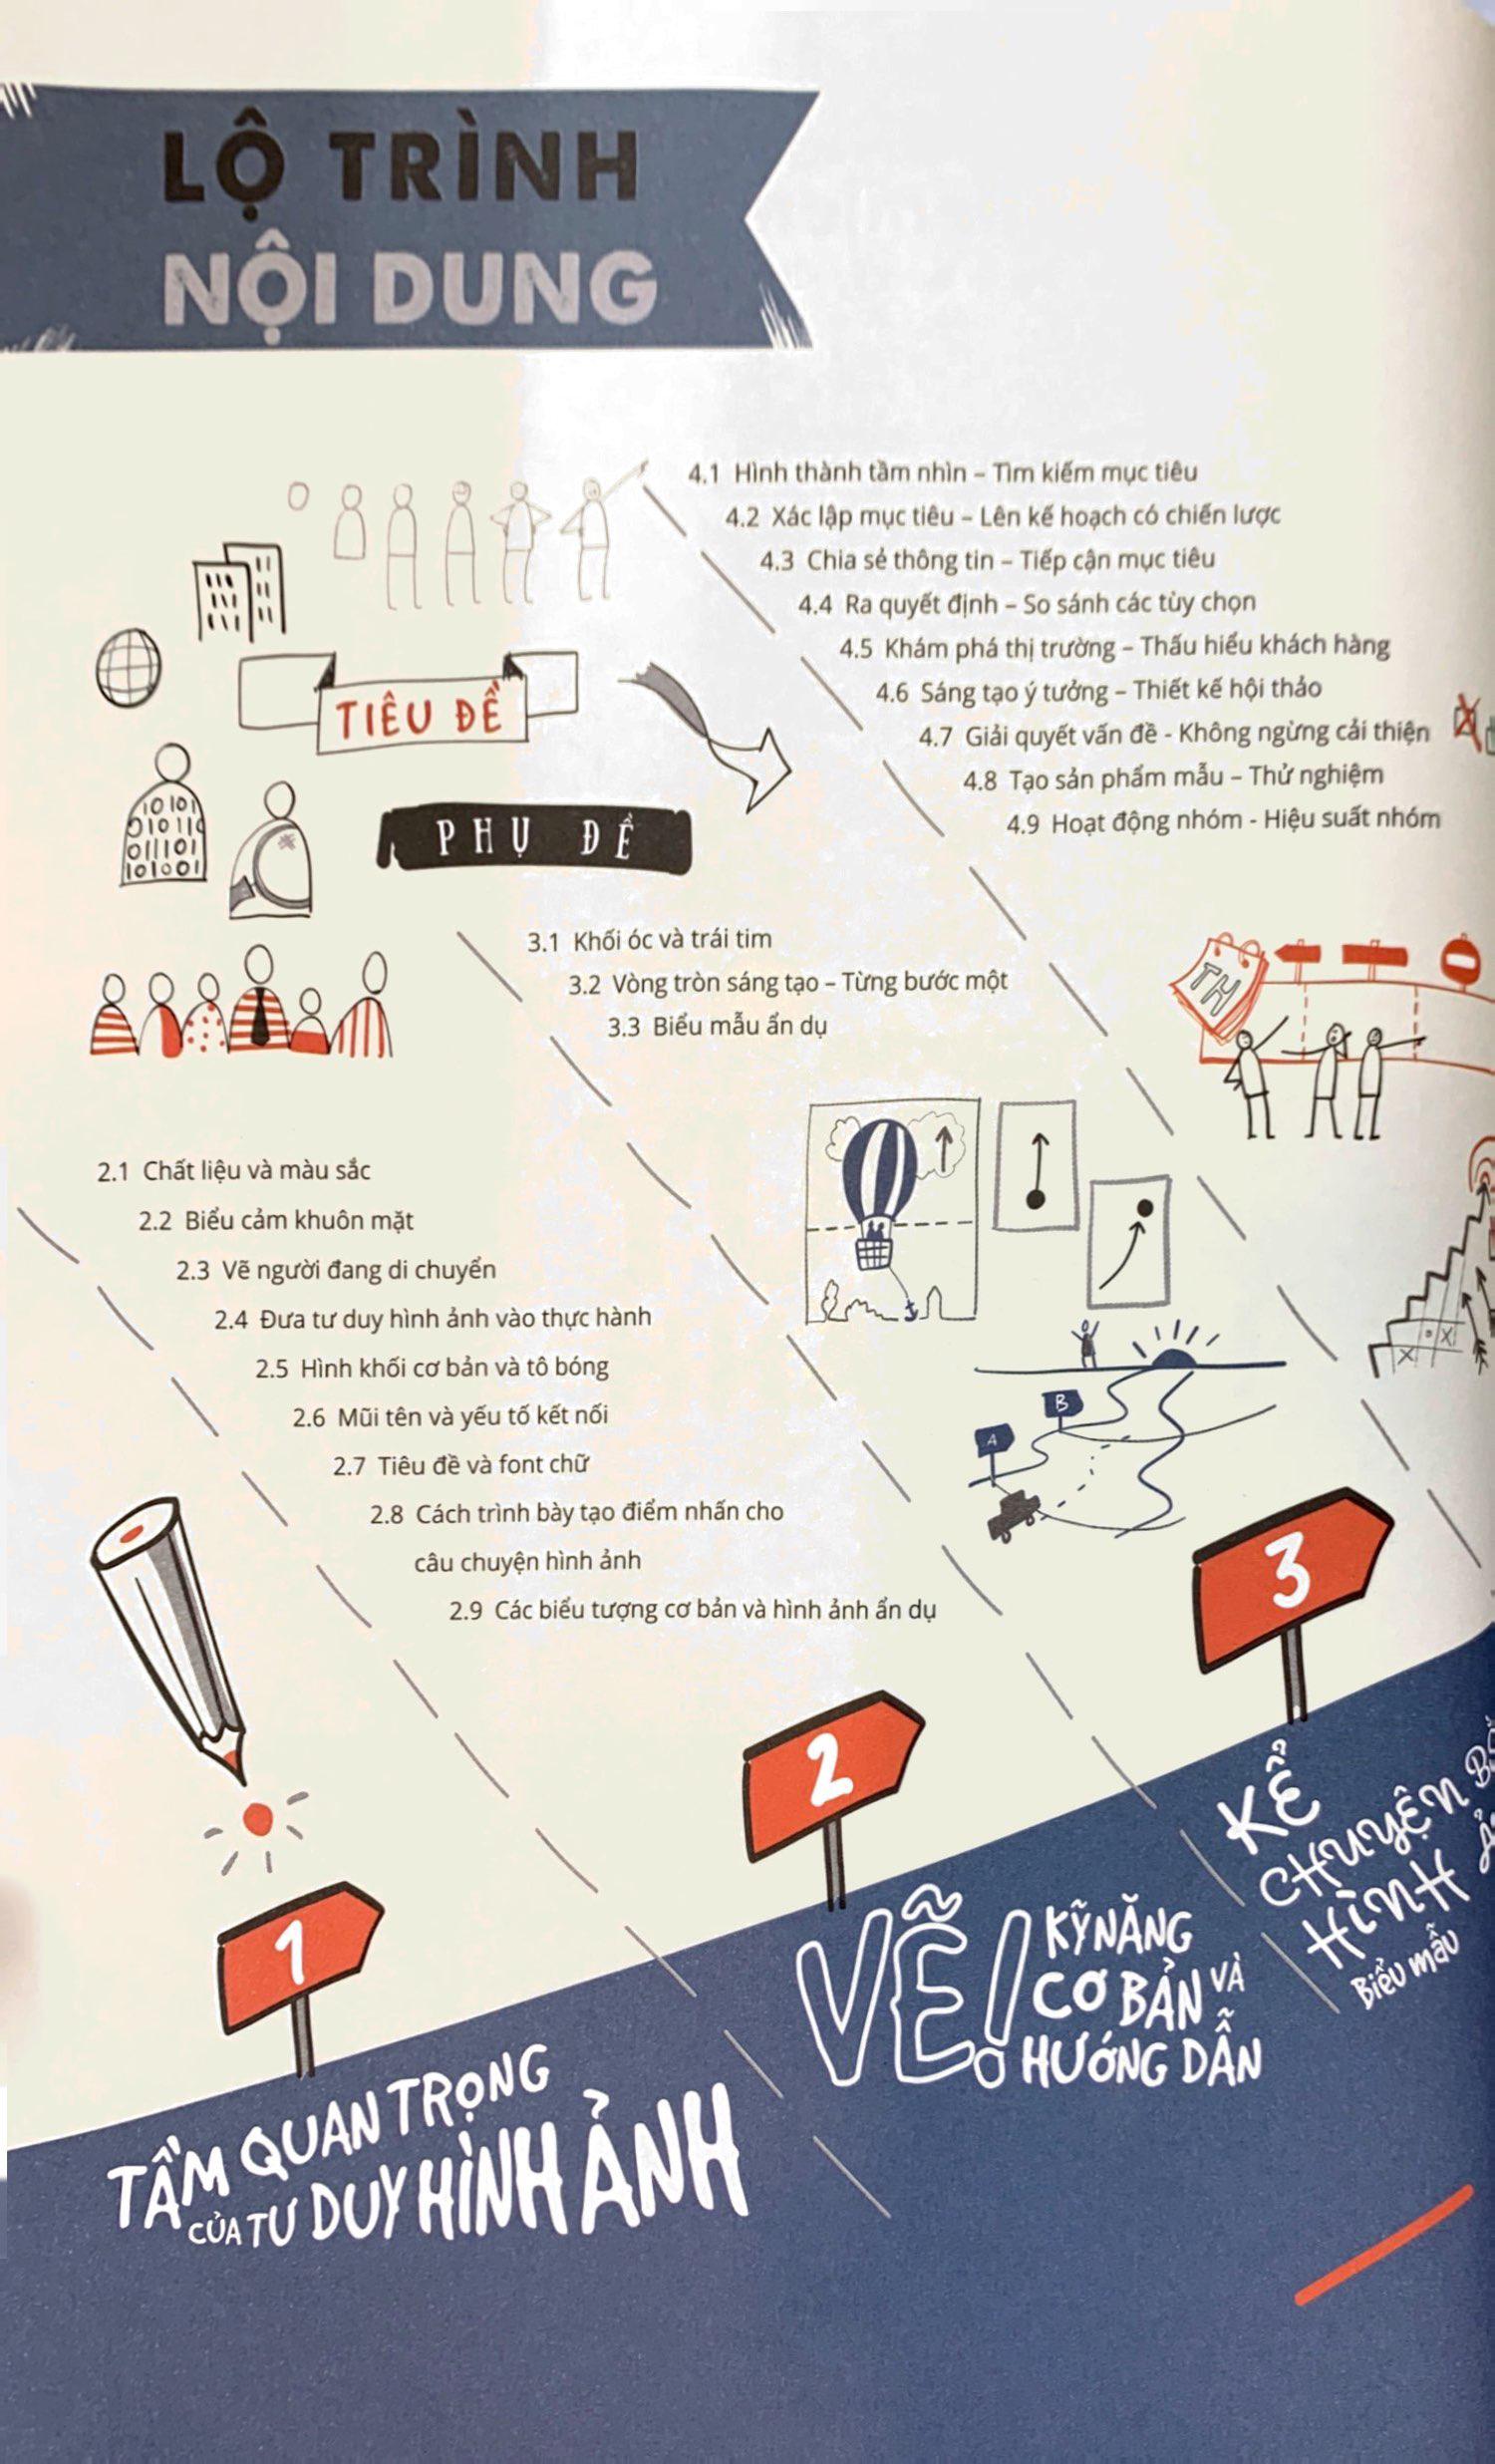 LỘ TRÌNH
NỘI DUNG
4.1 Hình thành tầm nhìn – Tìm kiếm mục tiêu
4.2 Xác lập mục tiêu – Lên kế hoạch có chiến lược
4.3 Chia sẻ thông tin – Tiếp cận mục tiêu
4.4 Ra quyết định – So sánh các tùy chọn
4.5 Khám phá thị trường – Thấu hiểu khách hàng
4.6 Sáng tạo ý tưởng – Thiết kế hội thảo
4.7 Giải quyết vấn đề - Không ngừng cải thiện
4.8 Tạo sản phẩm mẫu – Thử nghiệm
4.9 Hoạt động nhóm - Hiệu suất nhóm
TIÊU ĐỀ
PHỤ ĐỀ
10101
010110
011101
101001
3.1 Khối óc và trái tim
3.2 Vòng tròn sáng tạo – Từng bước một
3.3 Biểu mẫu ẩn dụ
TH
2.1 Chất liệu và màu sắc
2.2 Biểu cảm khuôn mặt
2.3 Vẽ người đang di chuyển
2.4 Đưa tư duy hình ảnh vào thực hành
2.5 Hình khối cơ bản và tô bóng
2.6 Mũi tên và yếu tố kết nối
2.7 Tiêu đề và font chữ
2.8 Cách trình bày tạo điểm nhấn cho
câu chuyện hình ảnh
2.9 Các biểu tượng cơ bản và hình ảnh ẩn dụ
B
A
1
TẦM QUAN TRỌNG
CỦA TƯ DUY HÌNH ẢNH
2
VẼ! KỸ NĂNG
CƠ BẢN VÀ
HƯỚNG DẪN
3
KỂ
CHUYỆN
HÌNH
Biểu mẫu